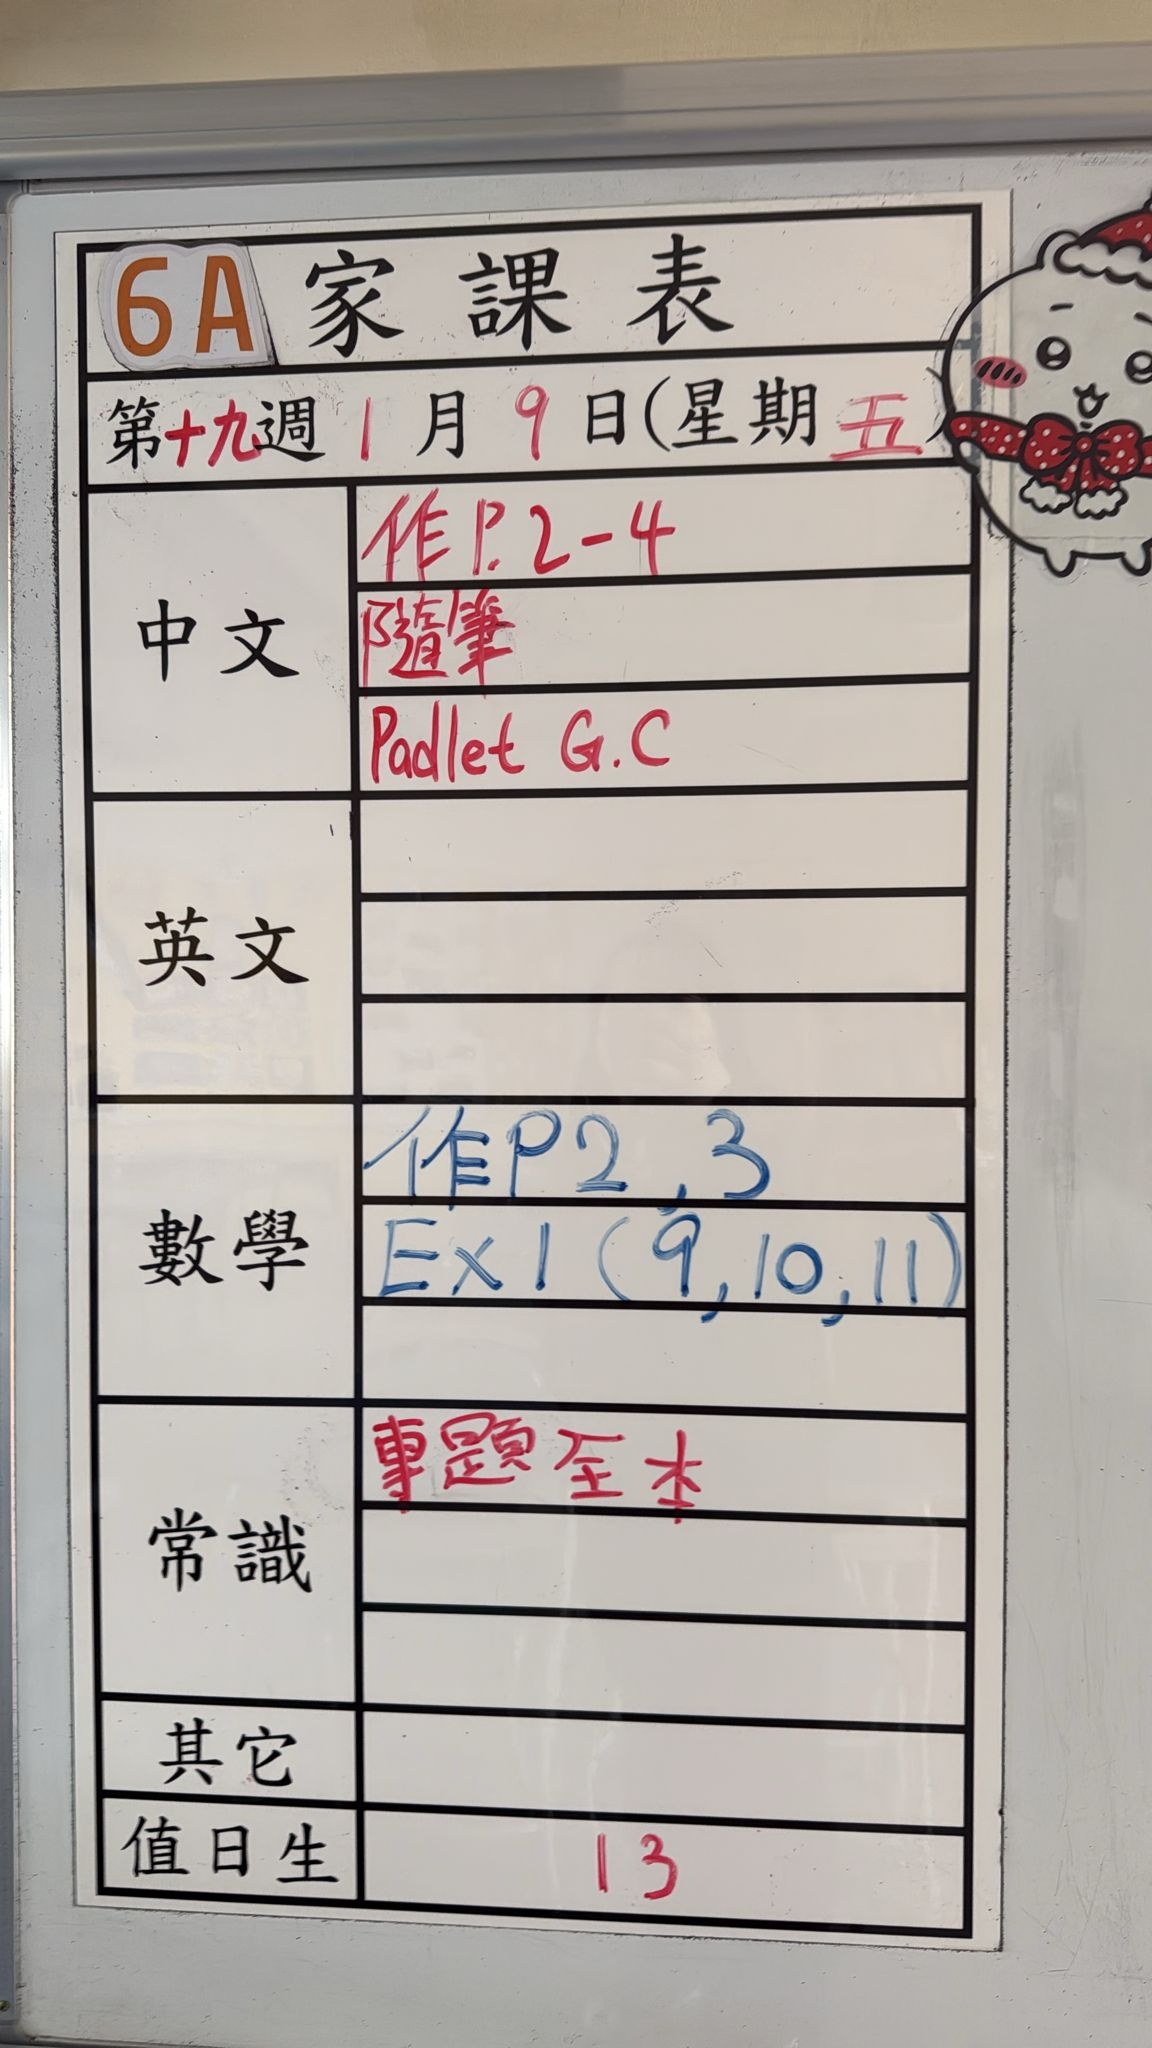 6A 家課表
第十九週 1月9日(星期五)
中文
作P.2-4
隨筆
Padlet G.C
英文
數學
作P2,3
Ex1(9,10,11)
常識
專題全本
其它
值日生
13